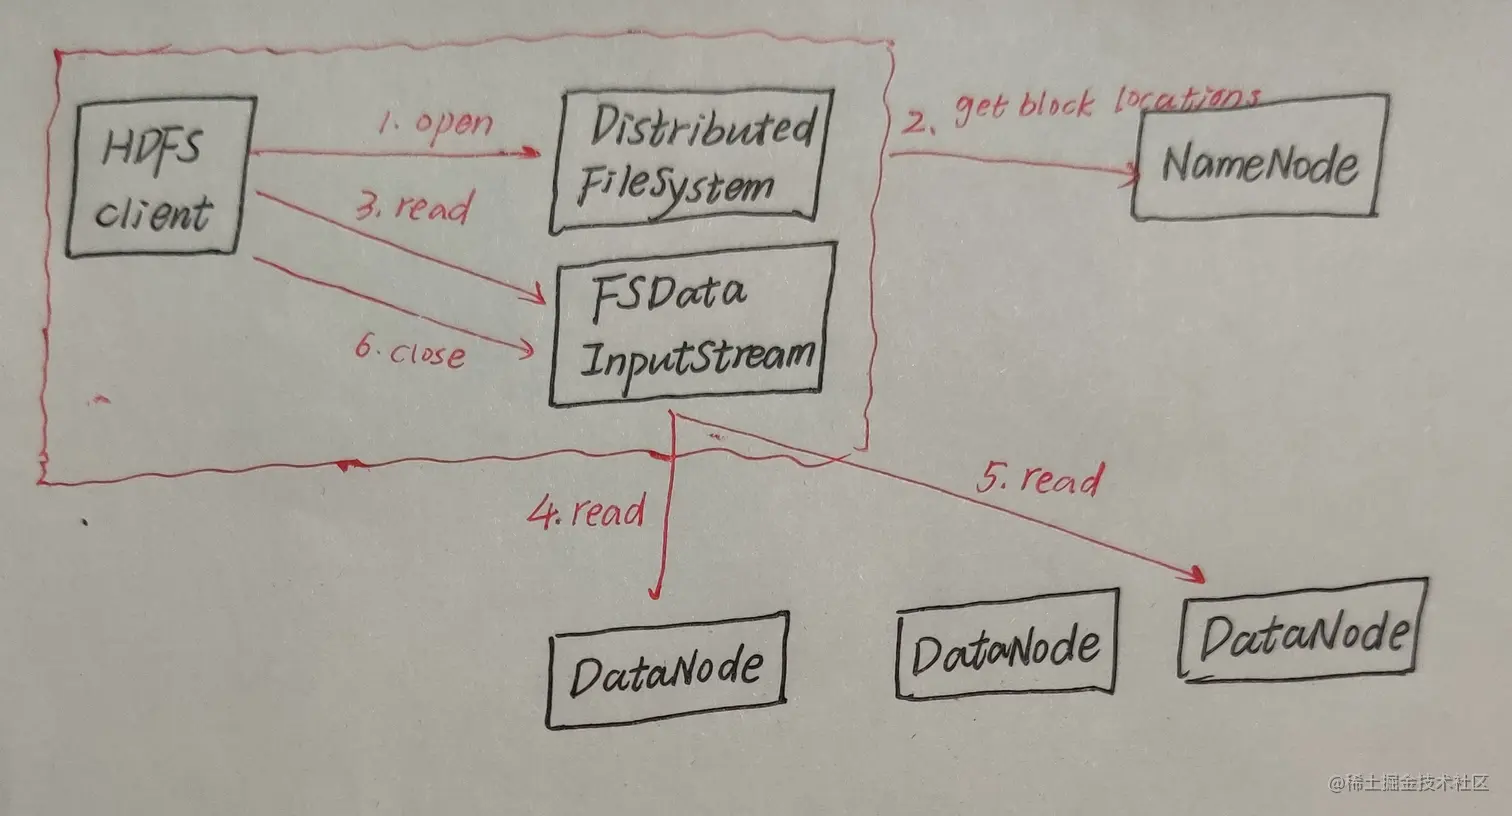 HDFS
client
1. open
3. read
6. close
Distributed
FileSystem
FSData
InputStream
2. get block locations
NameNode
4. read
5. read
DataNode
DataNode
DataNode
@稀土掘金技术社区